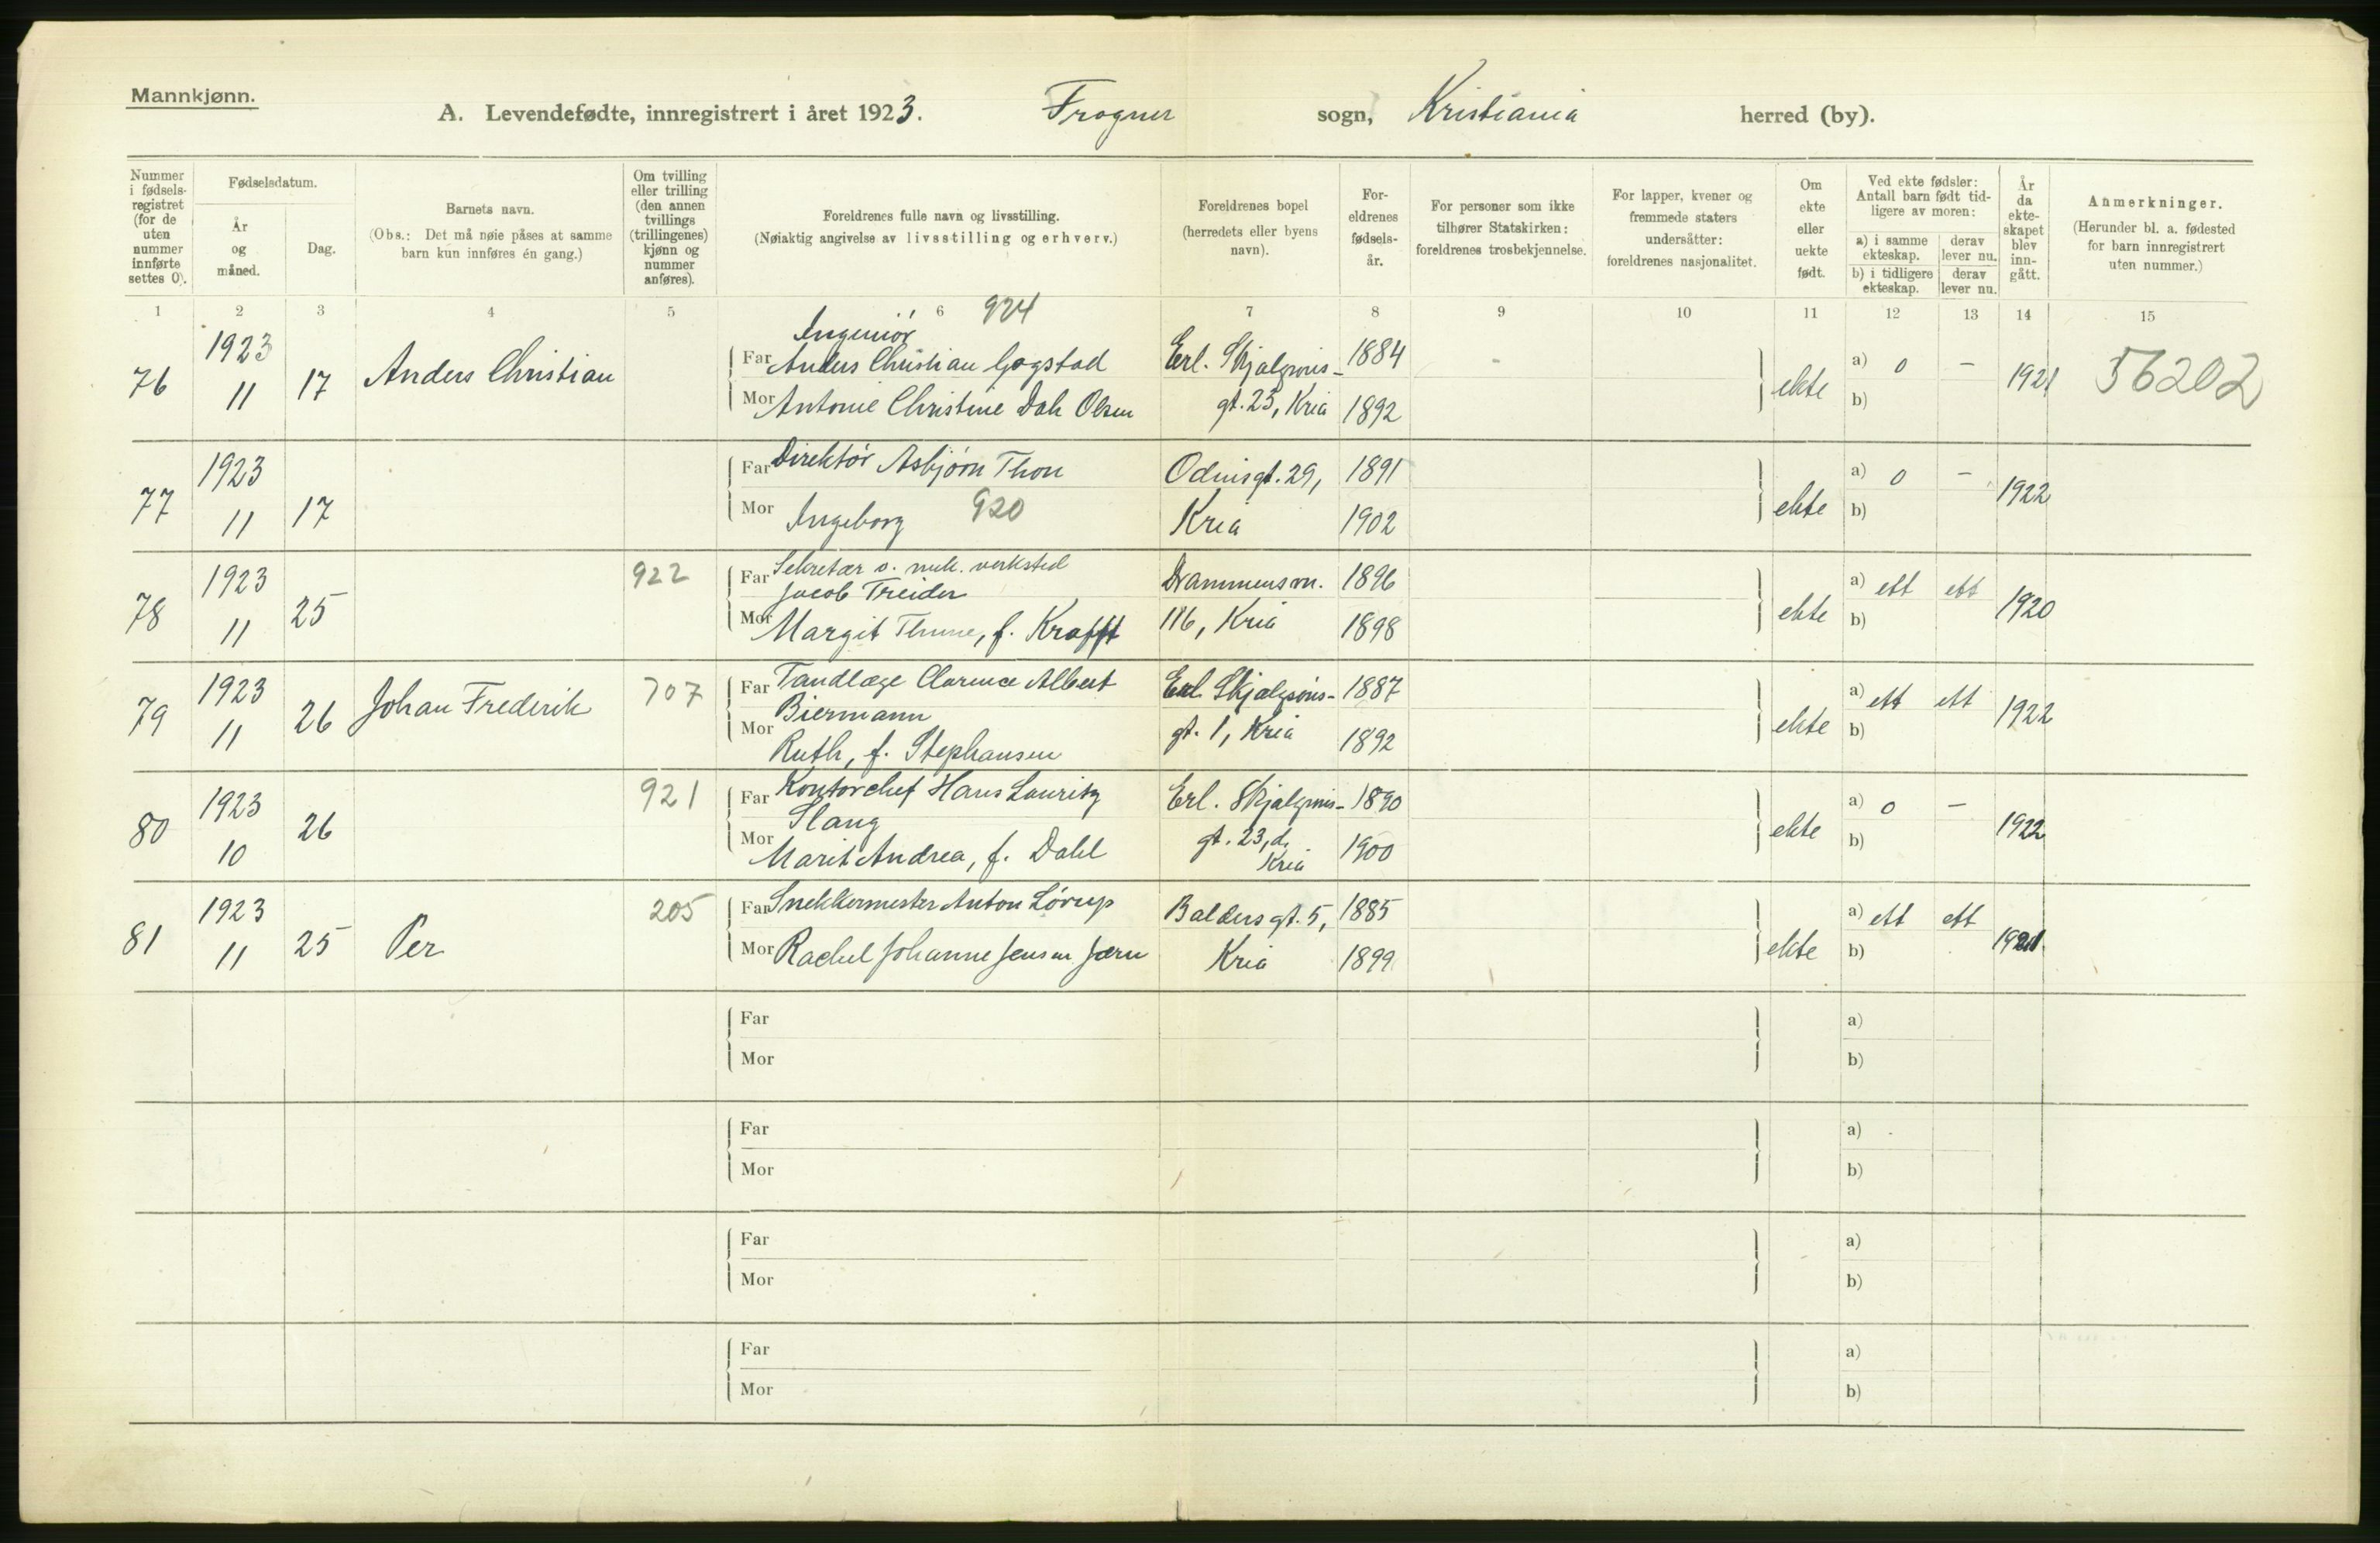 Mannkjønn.
A. Levendefødte, innregistrert i året 1923. Frogner sogn, Kristiania herred (by).
Nummer i fødsels-registret (for de uten nummer innførte settes 0).
Fødselsdatum.
År og måned.
Dag.
Barnets navn.
(Obs.: Det må nøie påses at samme barn kun innføres én gang.)
Om tvilling eller trilling (den annen tvillings (trillingenes) kjønn og nummer anføres).
Foreldrenes fulle navn og livsstilling.
(Nøiaktig angivelse av livsstilling og erhverv.)
Foreldrenes bopel (herredets eller byens navn).
For-eldrenes fødsels-år.
For personer som ikke tilhører Statskirken: foreldrenes trosbekjennelse.
For lapper, kvener og fremmede staters undersåtter: foreldrenes nasjonalitet.
Om ekte eller uekte født.
Ved ekte fødsler: Antall barn født tid-ligere av moren:
a) i samme ekteskap. derav lever nu.
b) i tidligere ekteskap. derav lever nu.
År da ekte-skapet blev inn-gått.
Anmerkninger.
(Herunder bl. a. fødested for barn innregistrert uten nummer.)
1 2 3 4 5 6 7 8 9 10 11 12 13 14 15
924
Ingeniør
76 1923 11 17 Anders Christian Far Anders Christian Gogstad Erl. Skjalgsøns- 1884 ekte a) 0 – 1921 56202
Mor Antonie Christine Dah Olsen gt. 23, Kria 1892 b)
77 1923 11 17 Far Direktør Asbjørn Thon Odinsgt. 29, 1891 ekte a) 0 – 1922
Mor Ingeborg 920 Kria 1902 b)
78 1923 11 25 922 Far Sekretær v. mek. verksted
Jacob Treider Drammensvn. 1896 ekte a) ett ett 1920
Mor Margit Thune, f. Krafft 116, Kria 1898 b)
79 1923 11 26 Johan Frederik 707 Far Tandlæge Clarence Albert
Biermann Erl. Skjalgsøns- 1887 ekte a) ett ett 1922
Mor Ruth, f. Stephansen gt. 1, Kria 1892 b)
80 1923 10 26 921 Far Kontorchef Hans Lauritz
Slang Erl. Skjalgsøns- 1890 ekte a) 0 – 1922
Mor Marit Andrea, f. Dahl gt. 23, d, Kria 1900 b)
81 1923 11 25 Per 205 Far Snekkermester Anton Lørup Baldersgt. 5, 1885 ekte a) ett ett 1921
Mor Rachel Johanne Jensen Jærn Kria 1899 b)
Far a)
Mor b)
Far a)
Mor b)
Far a)
Mor b)
Far a)
Mor b)